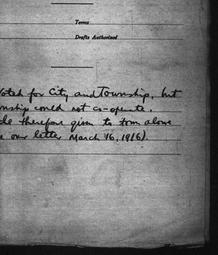 Terms
Drafts Authorized
Voted for City and Township, but
nship could not co-operate.
therefore given to town alone
our letter March 16, 1916)